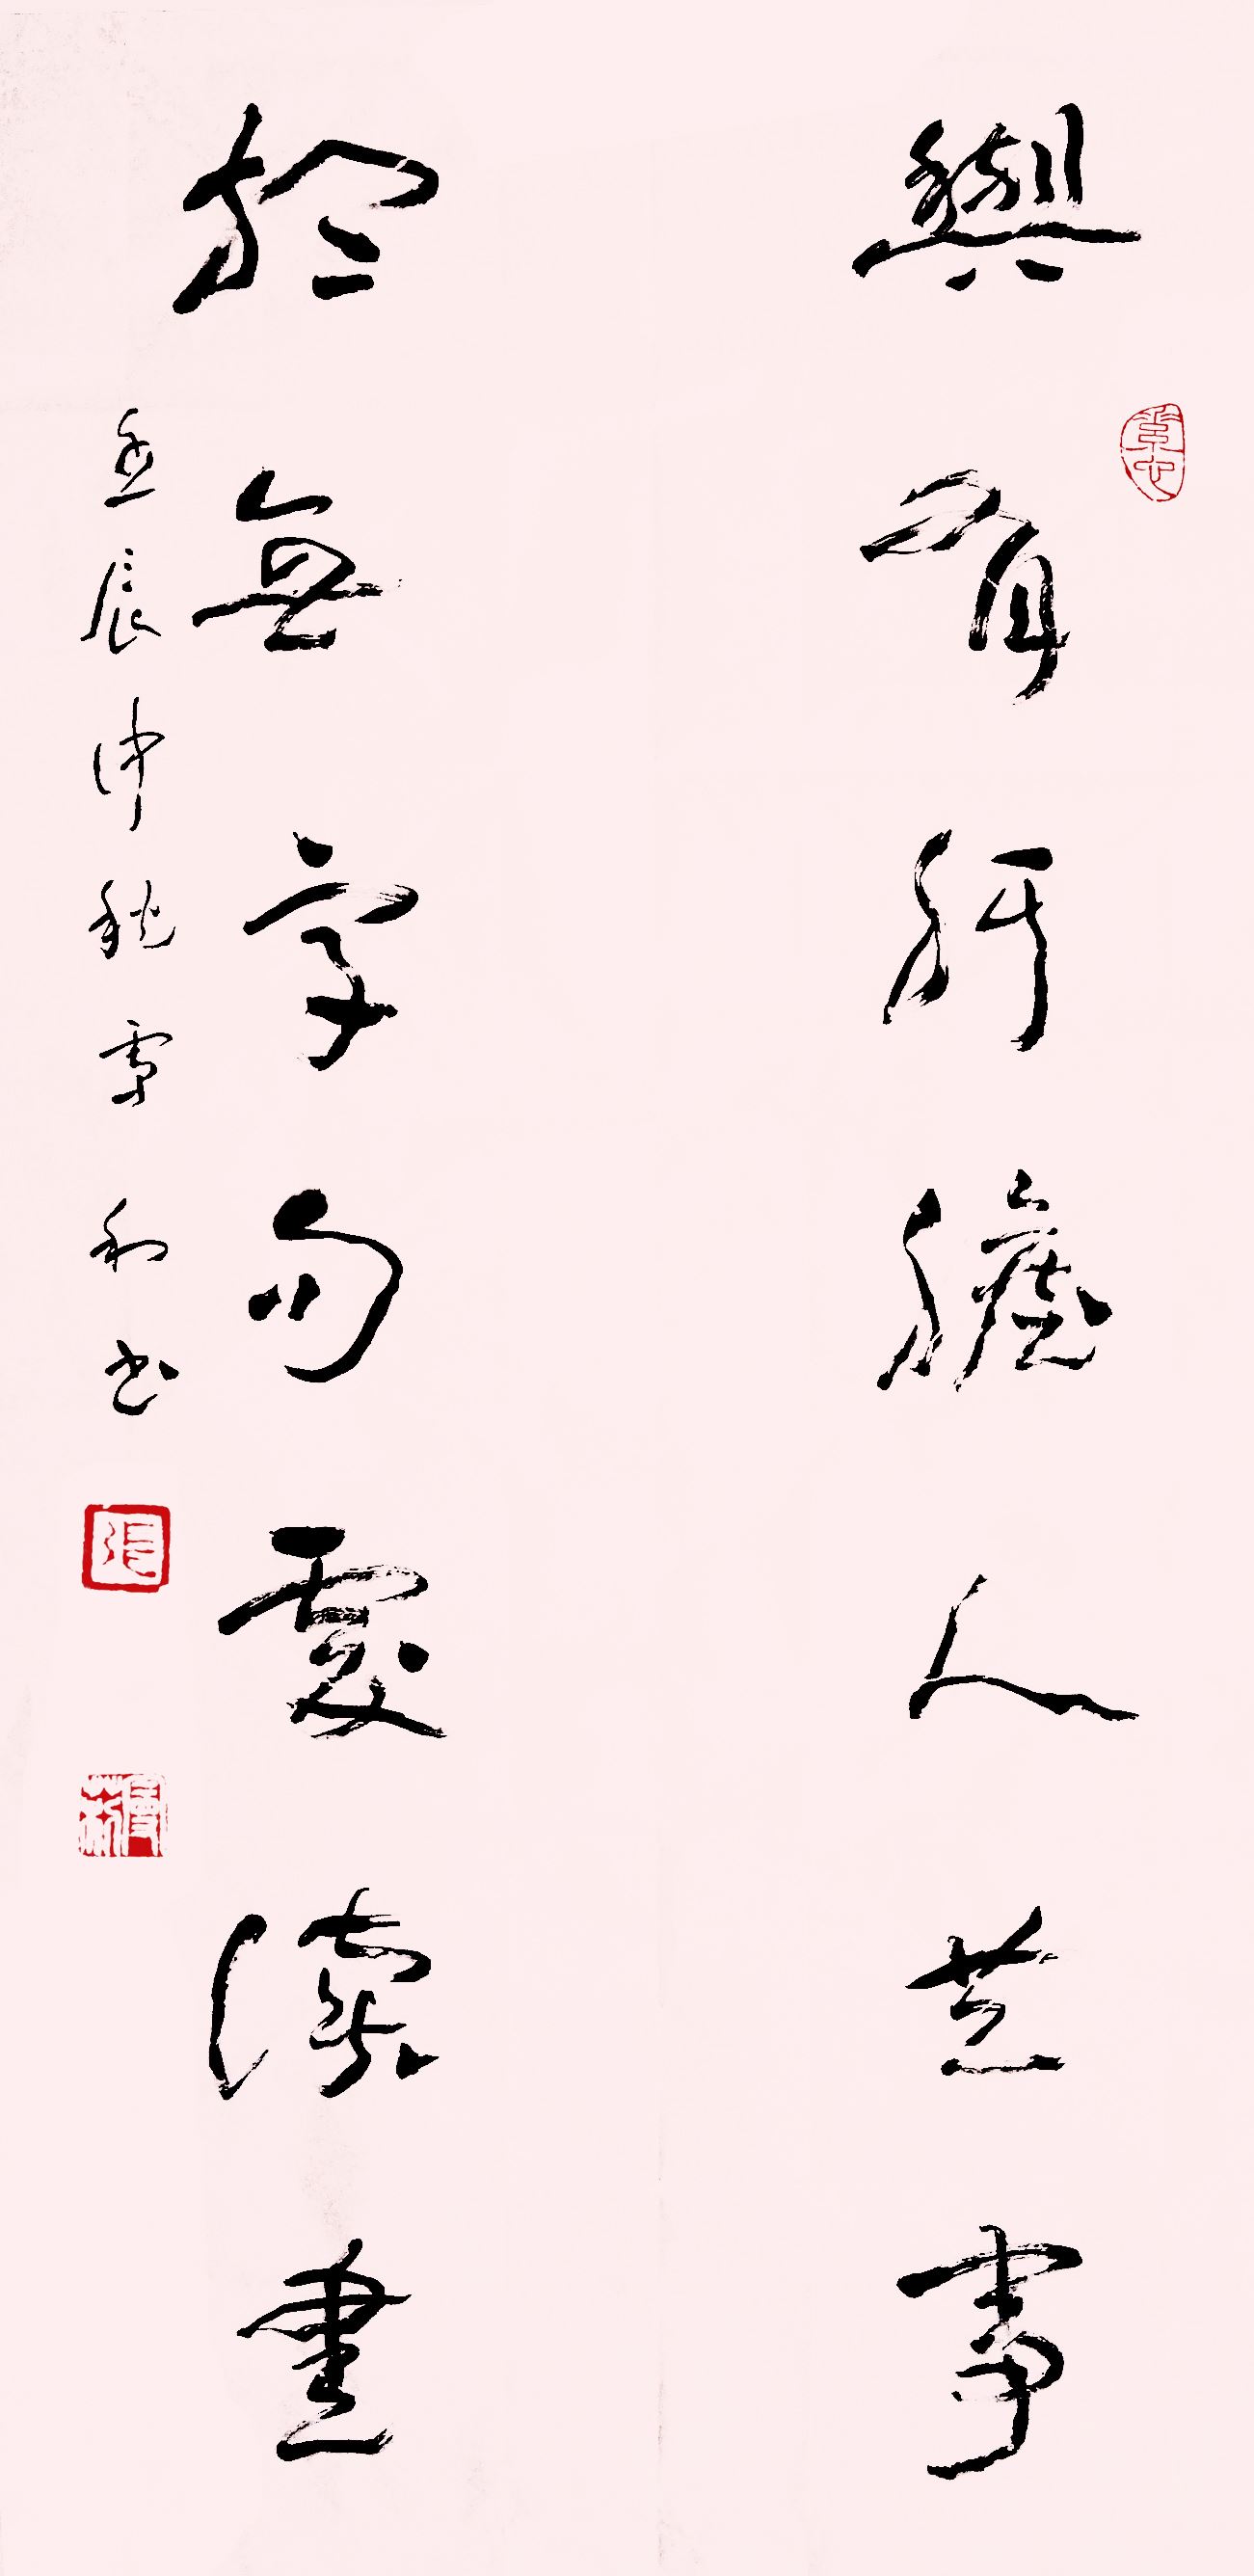 與有肝膽人共事
於無字句處讀書
辰仲秋和书
張